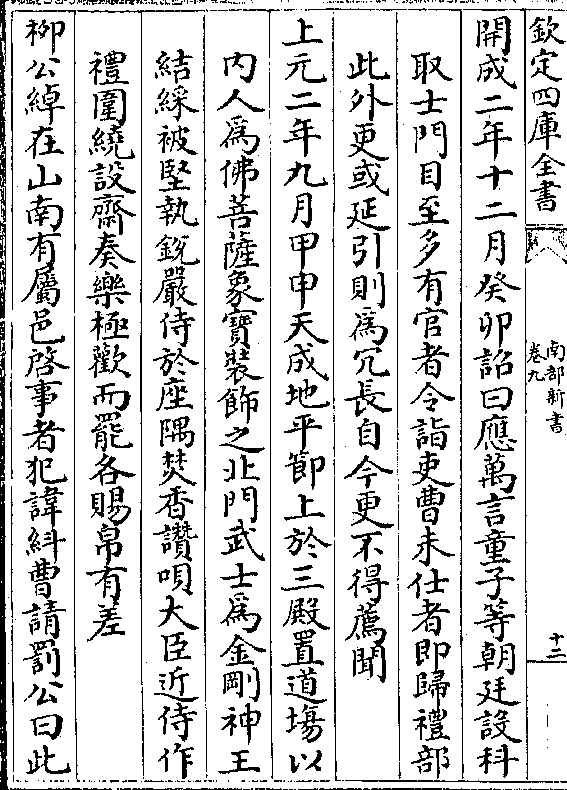 欽定四庫全書
南部新書
卷九
十二
開成二年十二月癸卯詔曰應萬言童子等朝廷設科
取士門目至多有官者令詣吏曹未仕者即歸禮部
此外更或延引則為冗長自今更不得薦聞
上元二年九月甲申天成地平節上於三殿置道場以
内人為佛菩薩象寶裝飾之北門武士為金剛神王
結綵被堅執銳嚴侍於座隅焚香讚唄大臣近侍作
禮圍繞設齋奏樂極歡而罷各賜帛有差
柳公綽在山南有屬邑啓事者犯諱糾曹請罰公曰此